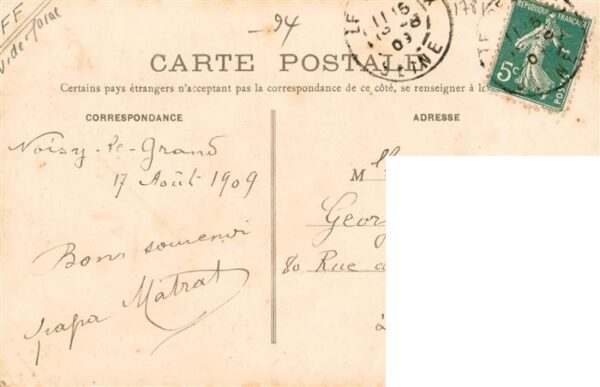 94
178
CARTE POSTALE
Certains pays étrangers n'acceptant pas la correspondance de ce côté, se renseigner à la
CORRESPONDANCE
Noisy-le-Grand
17 Août 1909
Bons souvenir
papa Matrat
ADRESSE
M lle
Geor
80 Rue
à
RÉPUBLIQUE FRANÇAISE
5c
POSTES
SEINE